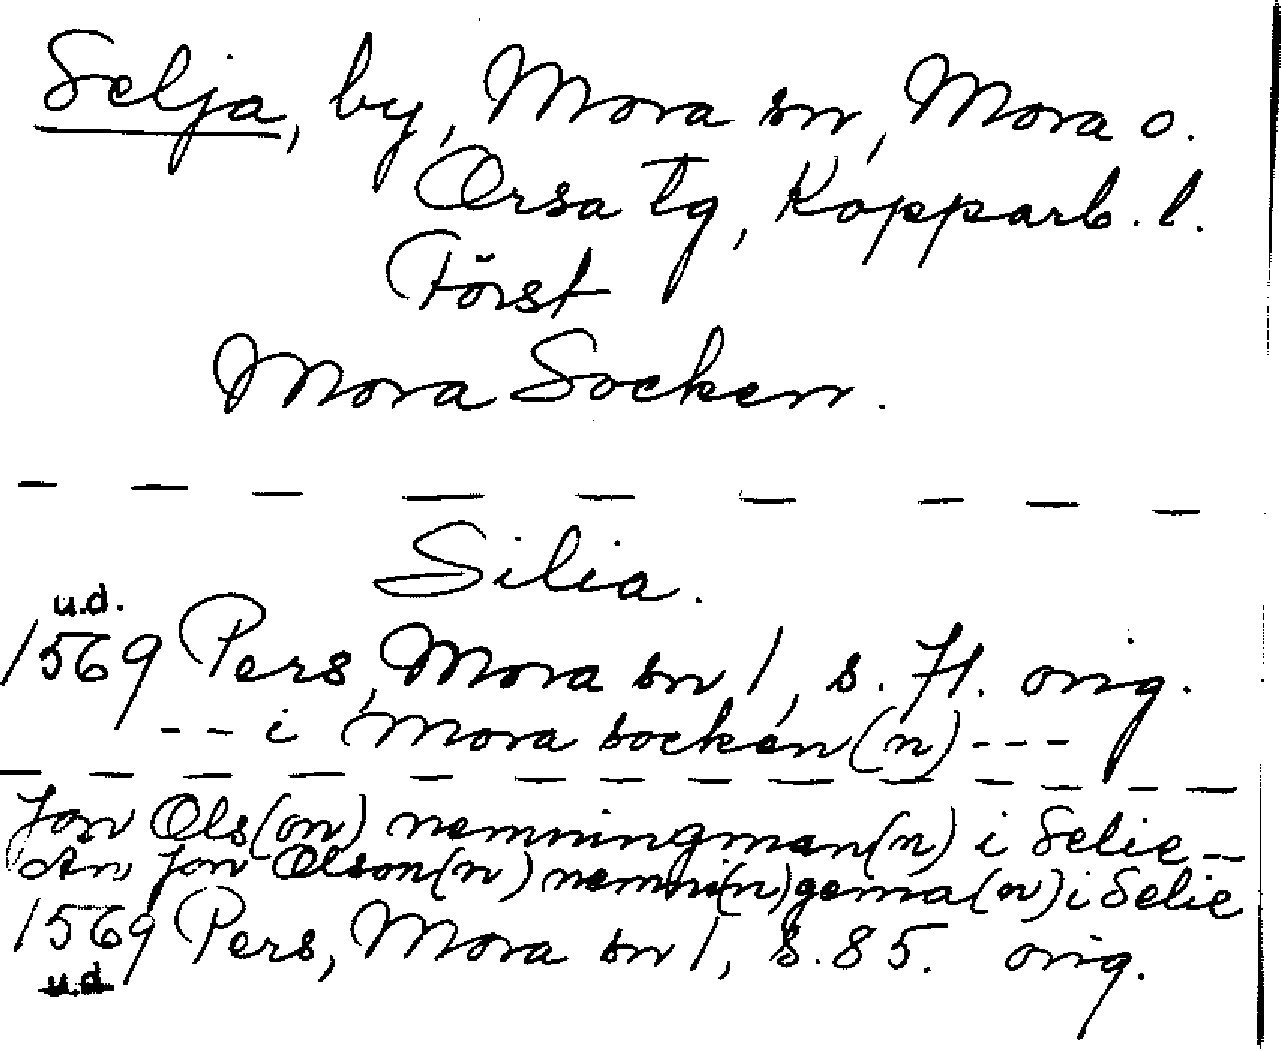 Selja, by, Mora sn, Mora o.
Orsa tg, Kopparb. l.
Först
Mora Socken.
Silia.
u.d.
1569 Pers, Mora sn 1, s. 71. orig.
--- i Mora socken(n) ---
Jon Ols(on) nemningman(n) i Selie -
An Jon Olson(n) nemni(n)gema(n) i Selie
1569 Pers, Mora sn 1, s. 85. orig.
u.d.